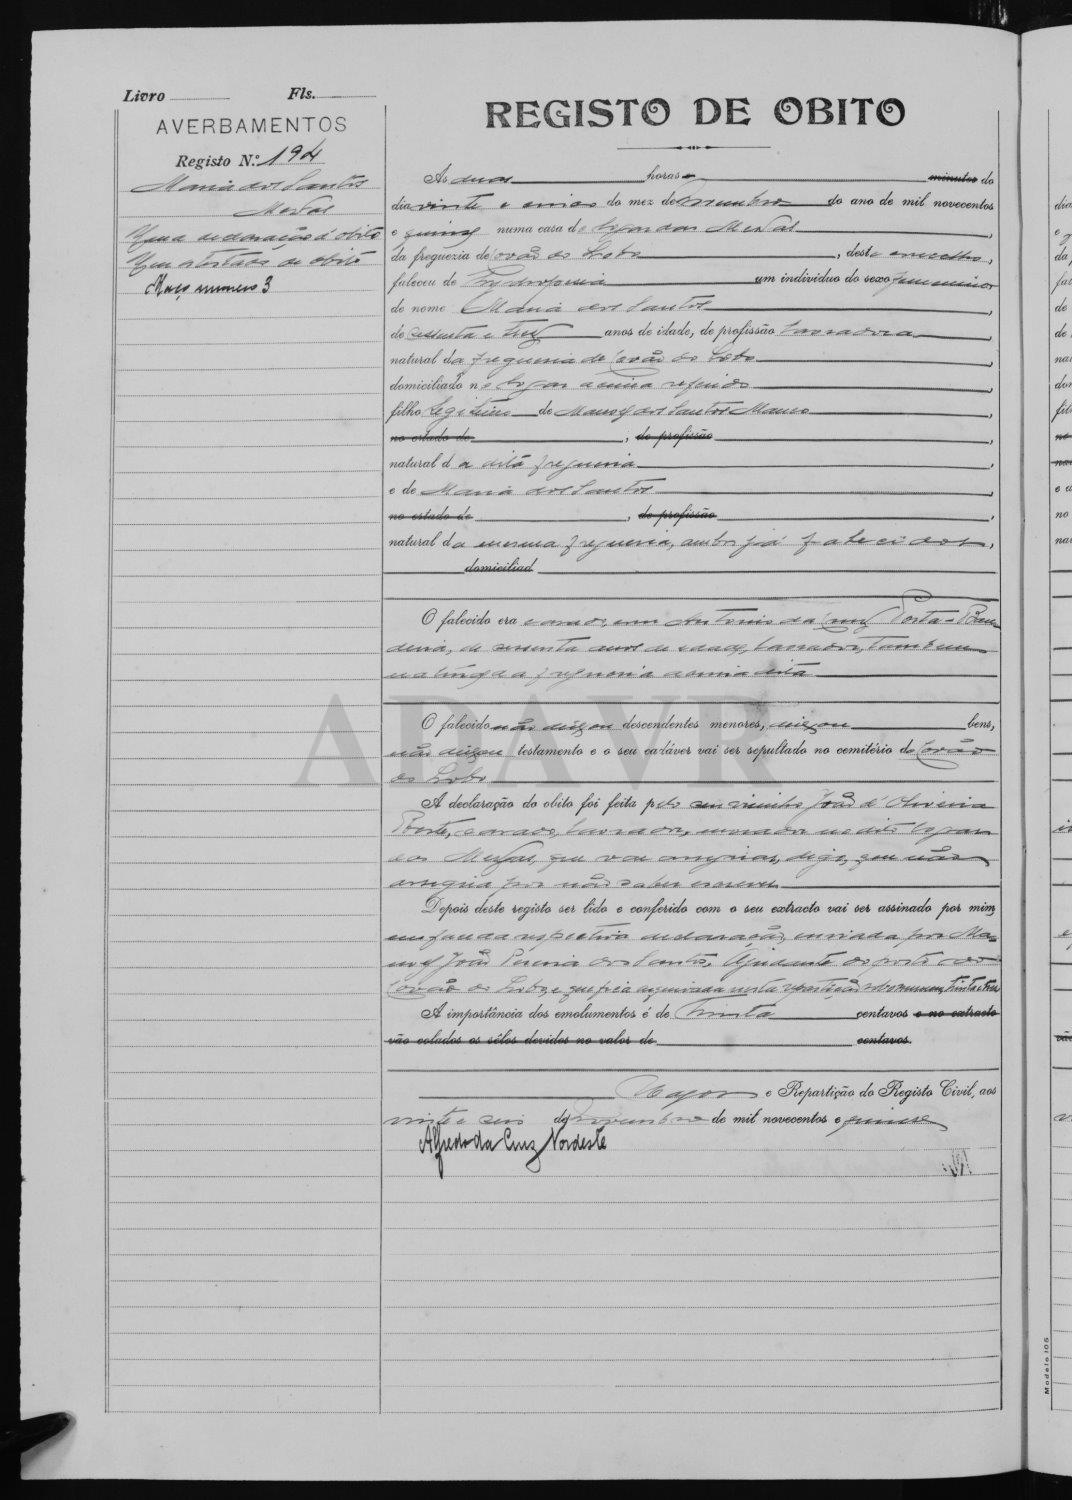 Livro Fls.
AVERBAMENTOS
Registo N.º 194
Maria dos Santos
Mestas
Uma declaração d'obito
Um atestado de obito
Maço numero 3
REGISTO DE OBITO
Ás duas horas e minutos do
dia vinte e cinco do mez de Novembro do ano de mil novecentos
e quinze numa casa do logar das Mestas
da freguezia de Covão do Lobo, deste concelho,
faleceu de um individuo do sexo femenino
de nome Maria dos Santos
de sessenta e tres anos de idade, de profissão lavradora
natural da freguesia de Covão do Lobo
domiciliado no logar acima referido
filho legitimo de Manoel dos Santos Manco
no estado de , de profissão
natural da dita freguesia
e de Maria dos Santos
no estado de , de profissão
natural da mesma freguesia, ambos já falecidos,
domiciliad
O falecido era casado, com Antonio da Cruz Porta-Ban-
deira, de sessenta anos de idade, lavrador, tambem
natural da freguesia acima dita
O falecido não deixou descendentes menores, deixou bens,
não deixou testamento e o seu cadáver vai ser sepultado no cemitério de Covão
do Lobo
A declaração do obito foi feita pelo seu visinho João d'Oliveira
casado, lavrador, morador no dito logar
das Mestas, que vae assignar, digo, que não
assigna por não saber escrever
Depois deste registo ser lido e conferido com o seu extracto vai ser assinado por mim,
em face da respectiva declaração, enviada por Ma-
noel João Pereira dos Santos, Ajudante do posto de
Covão do Lobo, e que fica arquivada nesta repartição
A importância dos emolumentos é de trinta centavos e no extracto
vão colados os sêlos devidos no valor de centavos.
Vagos e Repartição do Registo Civil, aos
vinte e seis de Novembro de mil novecentos e quinze
Alfredo da Cruz Nordeste
ADAVR
Modelo 105